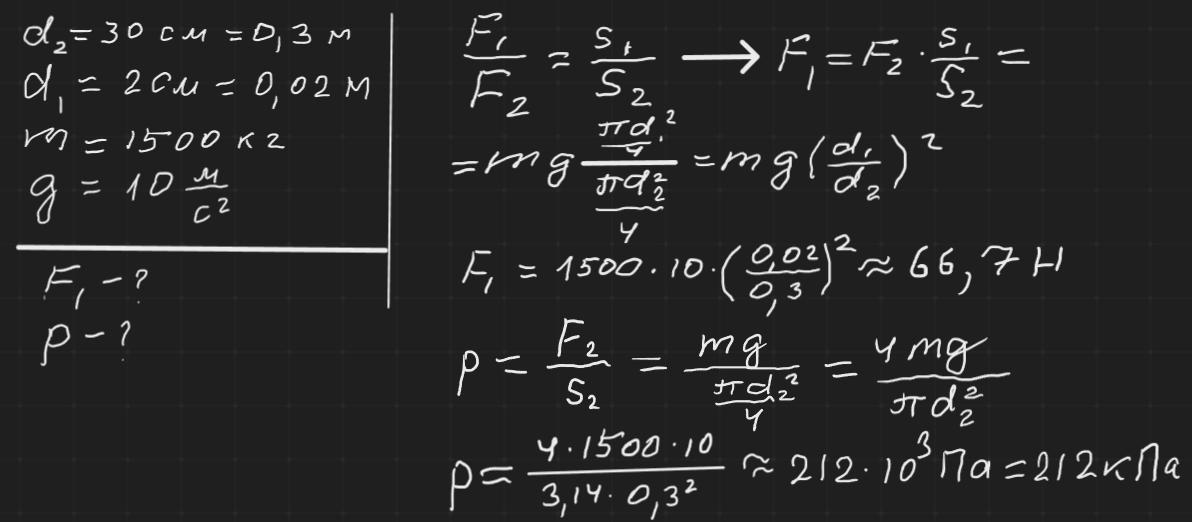 d₂ = 30 см = 0,3 м
d₁ = 2 см = 0,02 м
m = 1500 кг
g = 10 м/с²
F₁ - ?
p - ?
F₁/F₂ = S₁/S₂ → F₁ = F₂ · S₁/S₂ =
= mg (πd₁²/4)/(πd₂²/4) = mg(d₁/d₂)²
F₁ = 1500 · 10 · (0,02/0,3)² ≈ 66,7 Н
p = F₂/S₂ = mg/(πd₂²/4) = 4mg/πd₂²
p = (4 · 1500 · 10)/(3,14 · 0,3²) ≈ 212 · 10³ Па = 212 кПа